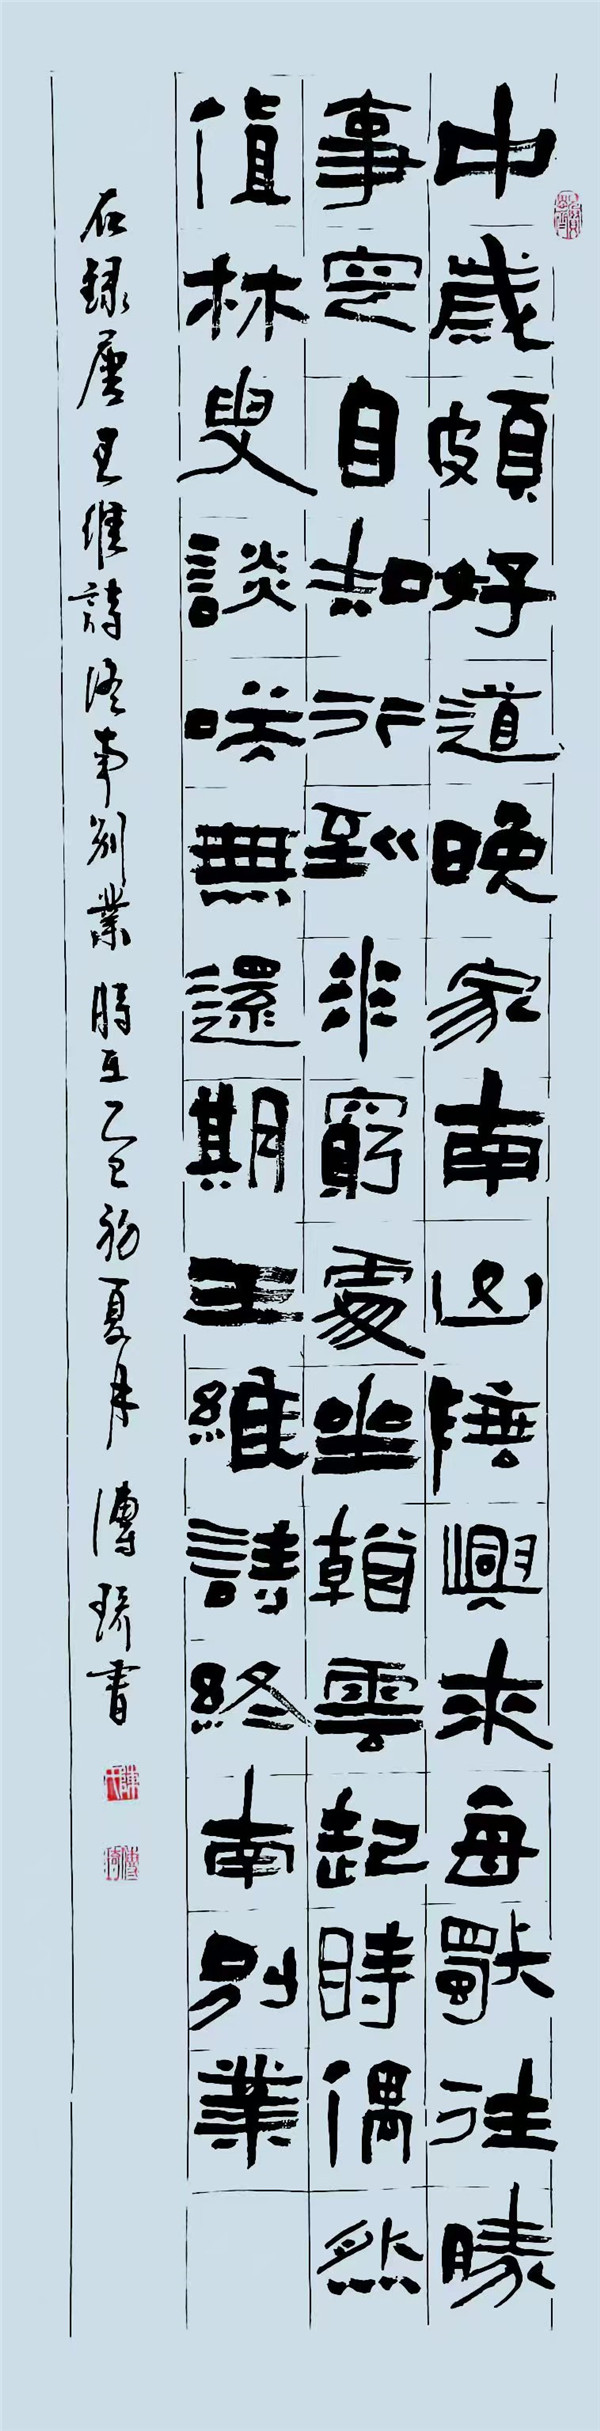 中歲頗好道晚家南山陲興來每獨往勝
事空自知行到水窮處坐看雲起時偶然
值林叟談咲無還期王維詩終南別業
右録唐王維詩終南別業時在乙巳初夏月 書